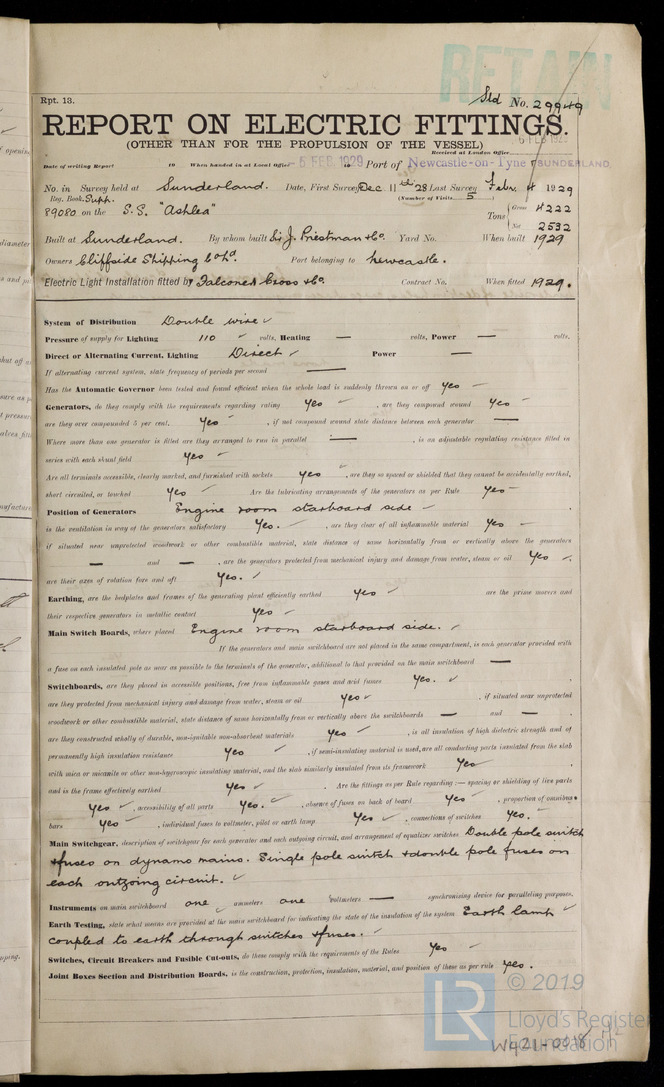 RETAIN
Rpt. 13.
Sld No. 29949
REPORT ON ELECTRIC FITTINGS.
(OTHER THAN FOR THE PROPULSION OF THE VESSEL)
6 FEB 192
Received at London Office
Date of writing Report 19 When handed in at Local Office 5 FEB. 1929 19 Port of Newcastle-on-Tyne SUNDERLAND.
No. in Survey held at Sunderland. Date, First Survey Dec 11th '28 Last Survey Febr. 4 1929
Reg. Book. Supp. (Number of Visits 5)
89080 on the S.S. "Ashlea" Tons { Gross 4222
Net 2532
Built at Sunderland. By whom built Sir J. Priestman & Co. Yard No. When built 1929
Owners Cliffside Shipping Co Ltd. Port belonging to Newcastle.
Electric Light Installation fitted by Falconer Cross & Co. Contract No. When fitted 1929.
System of Distribution Double wire ✓
Pressure of supply for Lighting 110 ✓ volts, Heating — volts, Power — volts.
Direct or Alternating Current, Lighting Direct ✓ Power —
If alternating current system, state frequency of periods per second —
Has the Automatic Governor been tested and found efficient when the whole load is suddenly thrown on or off Yes ✓
Generators, do they comply with the requirements regarding rating Yes ✓ , are they compound wound Yes ✓
are they over compounded 5 per cent. Yes ✓ , if not compound wound state distance between each generator —
Where more than one generator is fitted are they arranged to run in parallel — , is an adjustable regulating resistance fitted in
series with each shunt field Yes ✓
Are all terminals accessible, clearly marked, and furnished with sockets Yes ✓ , are they so spaced or shielded that they cannot be accidentally earthed,
short circuited, or touched Yes ✓ Are the lubricating arrangements of the generators as per Rule Yes ✓
Position of Generators Engine room starboard side ✓
is the ventilation in way of the generators satisfactory Yes. ✓ , are they clear of all inflammable material Yes ✓
if situated near unprotected woodwork or other combustible material, state distance of same horizontally from or vertically above the generators
— and — , are the generators protected from mechanical injury and damage from water, steam or oil Yes ✓ .
are their axes of rotation fore and aft Yes. ✓
Earthing, are the bedplates and frames of the generating plant efficiently earthed Yes ✓ are the prime movers and
their respective generators in metallic contact Yes ✓
Main Switch Boards, where placed Engine room starboard side. ✓
If the generators and main switchboard are not placed in the same compartment, is each generator provided with
a fuse on each insulated pole as near as possible to the terminals of the generator, additional to that provided on the main switchboard —
Switchboards, are they placed in accessible positions, free from inflammable gases and acid fumes Yes. ✓
are they protected from mechanical injury and damage from water, steam or oil Yes ✓ , if situated near unprotected
woodwork or other combustible material, state distance of same horizontally from or vertically above the switchboards — and — .
are they constructed wholly of durable, non-ignitable non-absorbent materials Yes ✓ , is all insulation of high dielectric strength and of
permanently high insulation resistance Yes ✓ , if semi-insulating material is used, are all conducting parts insulated from the slab
with mica or micanite or other non-hygroscopic insulating material, and the slab similarly insulated from its framework Yes ✓ .
and is the frame effectively earthed Yes ✓ . Are the fittings as per Rule regarding :— spacing or shielding of live parts
Yes ✓ , accessibility of all parts Yes. ✓ , absence of fuses on back of board Yes ✓ , proportion of omnibus
bars Yes ✓ , individual fuses to voltmeter, pilot or earth lamp Yes ✓ , connections of switches Yes. ✓
Main Switchgear, description of switchgear for each generator and each outgoing circuit, and arrangement of equalizer switches Double pole switch
& fuses on dynamo mains. Single pole switch & double pole fuses on
each outgoing circuit. ✓
Instruments on main switchboard one ✓ ammeters one voltmeters — synchronizing device for paralleling purposes.
Earth Testing, state what means are provided at the main switchboard for indicating the state of the insulation of the system Earth lamp ✓
coupled to earth through switches & fuses. ✓
Switches, Circuit Breakers and Fusible Cut-outs, do these comply with the requirements of the Rules Yes ✓
Joint Boxes Section and Distribution Boards, is the construction, protection, insulation, material, and position of these as per rule Yes.
© 2019
LR
Lloyd's Register
Foundation
W421-0078 1/2